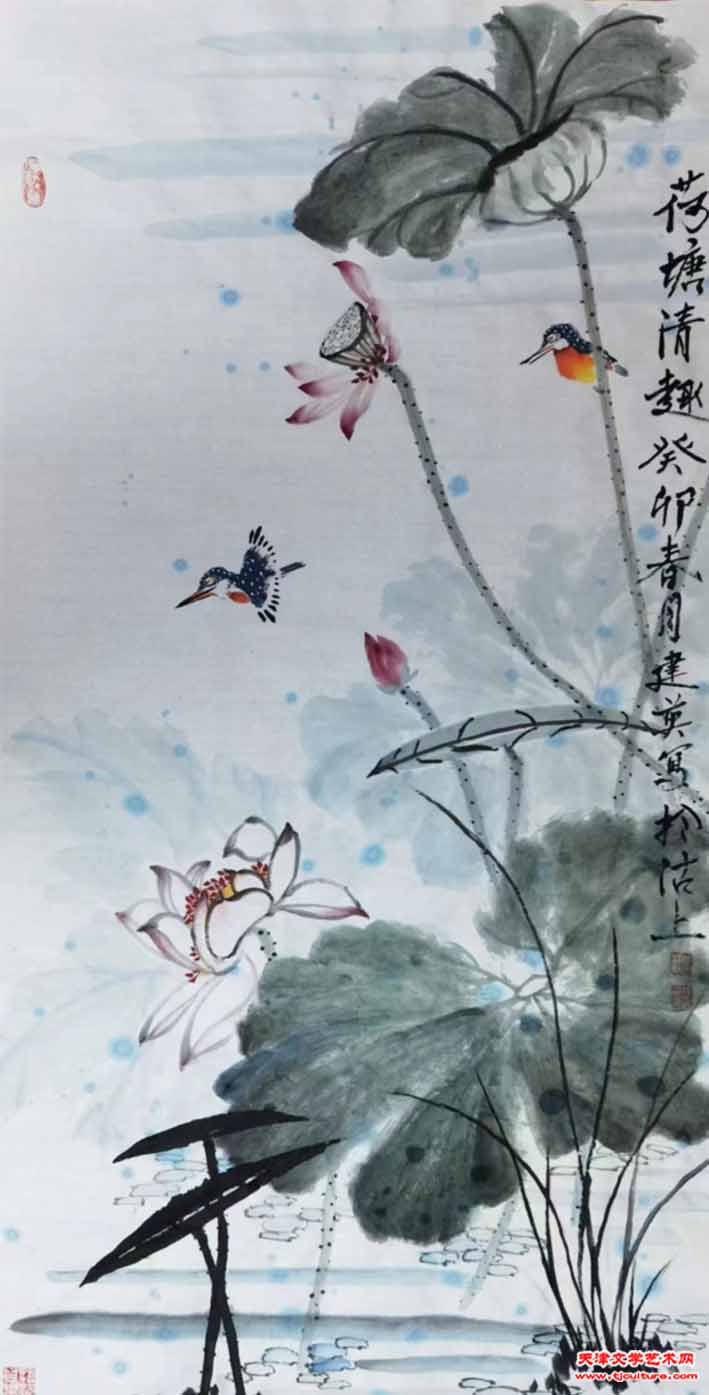 荷塘清趣癸卯春月建英写於沽上
天津文学艺术网
www.tjculture.com